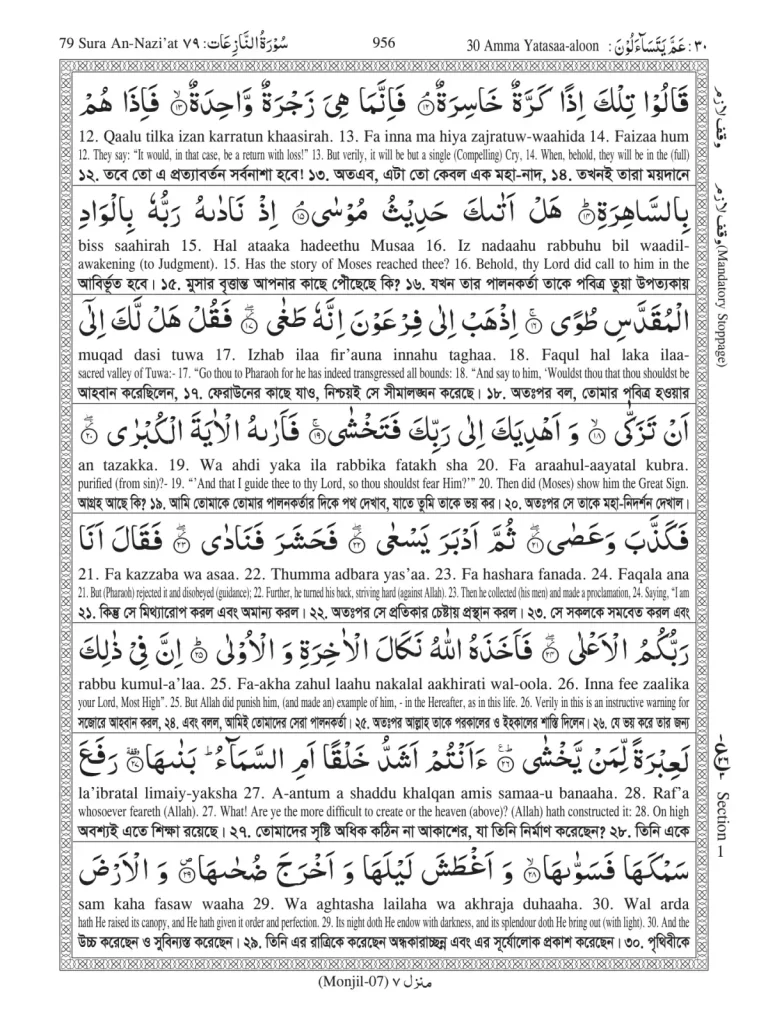 79 Sura An-Nazi'at ٧٩ : سُوْرَةُ النَّازِعَات
956
30 Amma Yatasaa-aloon : عَمَّ يَتَسَآءَلُوْنَ : ٣٠
قَالُوْا تِلْكَ اِذًا كَرَّةٌ خَاسِرَةٌ ۘ﴿١٢﴾ فَاِنَّمَا هِىَ زَجْرَةٌ وَّاحِدَةٌ ۙ﴿١٣﴾ فَاِذَا هُمْ
12. Qaalu tilka izan karratun khaasirah. 13. Fa inna ma hiya zajratuw-waahida 14. Faizaa hum
12. They say: “It would, in that case, be a return with loss!” 13. But verily, it will be but a single (Compelling) Cry, 14. When, behold, they will be in the (full)
১২. তবে তো এ প্রত্যাবর্তন সর্বনাশা হবে! ১৩. অতএব, এটা তো কেবল এক মহা-নাদ, ১৪. তখনই তারা ময়দানে
بِالسَّاهِرَةِ ؕ﴿١٤﴾ هَلْ اَتٰىكَ حَدِيْثُ مُوْسٰى ۘ﴿١٥﴾ اِذْ نَادٰىهُ رَبُّهٗ بِالْوَادِ
biss saahirah 15. Hal ataaka hadeethu Musaa 16. Iz nadaahu rabbuhu bil waadil-
awakening (to Judgment). 15. Has the story of Moses reached thee? 16. Behold, thy Lord did call to him in the
আবির্ভূত হবে। ১৫. মুসার বৃত্তান্ত আপনার কাছে পৌছেছে কি? ১৬. যখন তার পালনকর্তা তাকে পবিত্র তুয়া উপত্যকায়
الْمُقَدَّسِ طُوًى ۚ﴿١٦﴾ اِذْهَبْ اِلٰى فِرْعَوْنَ اِنَّهٗ طَغٰى ۖ﴿١٧﴾ فَقُلْ هَلْ لَّكَ اِلٰٓى
muqad dasi tuwa 17. Izhab ilaa fir’auna innahu taghaa. 18. Faqul hal laka ilaa-
sacred valley of Tuwa:- 17. “Go thou to Pharaoh for he has indeed transgressed all bounds: 18. “And say to him, ‘Wouldst thou that thou shouldst be
আহবান করেছিলেন, ১৭. ফেরাউনের কাছে যাও, নিশ্চয়ই সে সীমালঙ্ঘন করেছে। ১৮. অতঃপর বল, তোমার পবিত্র হওয়ার
اَنْ تَزَكّٰى ۙ﴿١٨﴾ وَ اَهْدِيَكَ اِلٰى رَبِّكَ فَتَخْشٰى ۚ﴿١٩﴾ فَاَرٰىهُ الْاٰيَةَ الْكُبْرٰى ۖ﴿٢٠﴾
an tazakka. 19. Wa ahdi yaka ila rabbika fatakh sha 20. Fa araahul-aayatal kubra.
purified (from sin)?- 19. “‘And that I guide thee to thy Lord, so thou shouldst fear Him?’” 20. Then did (Moses) show him the Great Sign.
আগ্রহ আছে কি? ১৯. আমি তোমাকে তোমার পালনকর্তার দিকে পথ দেখাব, যাতে তুমি তাকে ভয় কর। ২০. অতঃপর সে তাকে মহা-নিদর্শন দেখাল।
فَكَذَّبَ وَعَصٰى ۖ﴿٢١﴾ ثُمَّ اَدْبَرَ يَسْعٰى ۖ﴿٢٢﴾ فَحَشَرَ فَنَادٰى ۖ﴿٢٣﴾ فَقَالَ اَنَا
21. Fa kazzaba wa asaa. 22. Thumma adbara yas’aa. 23. Fa hashara fanada. 24. Faqala ana
21. But (Pharaoh) rejected it and disobeyed (guidance); 22. Further, he turned his back, striving hard (against Allah). 23. Then he collected (his men) and made a proclamation, 24. Saying, “I am
২১. কিন্তু সে মিথ্যারোপ করল এবং অমান্য করল। ২২. অতঃপর সে প্রতিকার চেষ্টায় প্রস্থান করল। ২৩. সে সকলকে সমবেত করল এবং
رَبُّكُمُ الْاَعْلٰى ۖ﴿٢٤﴾ فَاَخَذَهُ اللّٰهُ نَكَالَ الْاٰخِرَةِ وَ الْاُوْلٰى ؕ﴿٢٥﴾ اِنَّ فِىْ ذٰلِكَ
rabbu kumul-a’laa. 25. Fa-akha zahul laahu nakalal aakhirati wal-oola. 26. Inna fee zaalika
your Lord, Most High”. 25. But Allah did punish him, (and made an) example of him, - in the Hereafter, as in this life. 26. Verily in this is an instructive warning for
সজোরে আহবান করল, ২৪. এবং বলল, আমিই তোমাদের সেরা পালনকর্তা। ২৫. অতঃপর আল্লাহ তাকে পরকালের ও ইহকালের শাস্তি দিলেন। ২৬. যে ভয় করে তার জন্য
لَعِبْرَةً لِّمَنْ يَّخْشٰى ؕ﴿٢٦﴾ ءَاَنْتُمْ اَشَدُّ خَلْقًا اَمِ السَّمَآءُ ؕ بَنٰىهَا ۥ﴿٢٧﴾ رَفَعَ
la’ibratal limaiy-yaksha 27. A-antum a shaddu khalqan amis samaa-u banaaha. 28. Raf’a
whosoever feareth (Allah). 27. What! Are ye the more difficult to create or the heaven (above)? (Allah) hath constructed it: 28. On high
অবশ্যই এতে শিক্ষা রয়েছে। ২৭. তোমাদের সৃষ্টি অধিক কঠিন না আকাশের, যা তিনি নির্মাণ করেছেন? ২৮. তিনি একে
سَمْكَهَا فَسَوّٰىهَا ۙ﴿٢٨﴾ وَ اَغْطَشَ لَيْلَهَا وَ اَخْرَجَ ضُحٰىهَا ۪﴿٢٩﴾ وَ الْاَرْضَ
sam kaha fasaw waaha 29. Wa aghtasha lailaha wa akhraja duhaaha. 30. Wal arda
hath He raised its canopy, and He hath given it order and perfection. 29. Its night doth He endow with darkness, and its splendour doth He bring out (with light). 30. And the
উচ্চ করেছেন ও সুবিন্যস্ত করেছেন। ২৯. তিনি এর রাত্রিকে করেছেন অন্ধকারাচ্ছন্ন এবং এর সূর্যোলোক প্রকাশ করেছেন। ৩০. পৃথিবীকে
وقف لازم
وقف لازم (Mandatory Stoppage)
Section 1
(Monjil-07) منزل ٧